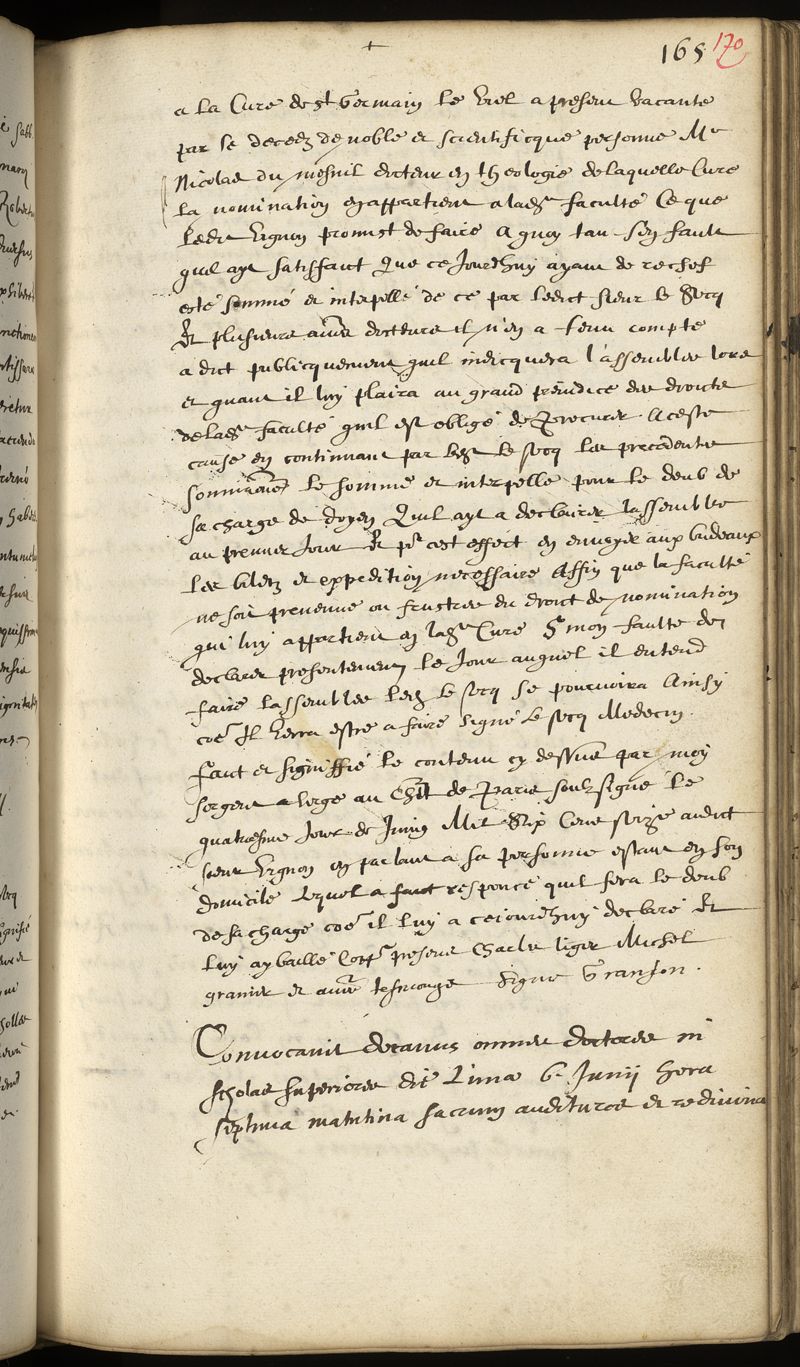 +
165 170
a la Cure de st Germain le viel a present vacante
par le deceds de noble et scientificque personne Me
Nicolas du mesnil docteur en theologie de laquelle Cure
la nomination en appartient a lade faculté Ce que
ledit vignon promist de faire a quoy tan sen fault
quil ayt satisfaict Que ce Jourdhuy ayant de rechef
esté sommé et interpellé de ce par ledict sieur le Secq
Et plusieurs autres docteurs il n'en a tenu compte
a dict publicquement quil indicquera l'assemblee lors
et quant il luy plaira au grand preiudice des droicts
de lade faculté quil est obligé de procurer A ceste
cause en continuant par led le secq les precedentes
sommaōns le somme et interpelle pour le deub de
sa charge de doyen Quil ayt a declairer lassemblee
au premier Jour Et pr cest effect en envoyer aux bedeaux
les billetz et expedition necessaire Affin que la faculté
ne soit prevenue ou frustree du droict de nomination
qui luy appartient en lade Cure Sinon faulte de
declarer presentement le Jour auquel il entend
faire lassemblee led le secq se pourvoira Ainsy
coē Il verra estre a faire signé Le secq Medecin.
Faict et signiffié le contenu cy dessus par moy
sergent a verge au Chlt de Paris soubzsigné le
quatresme Jour de Juing Mil Six Cens seize audict
sieur vignon en parlant a sa personne estant en son
domicile Lequel a faict responce quil fera le deub
de sa charge coē il luy a ceiourdhuy declaré Et
luy ay baillé Copp presens Charles liger Michel
granier et autres tesmoings Signé Granjon.
Convocavit decanus omnes doctores in
scholas superiores die Lunae 6 Junij hora
septima matutina sacrum audituros et re divina